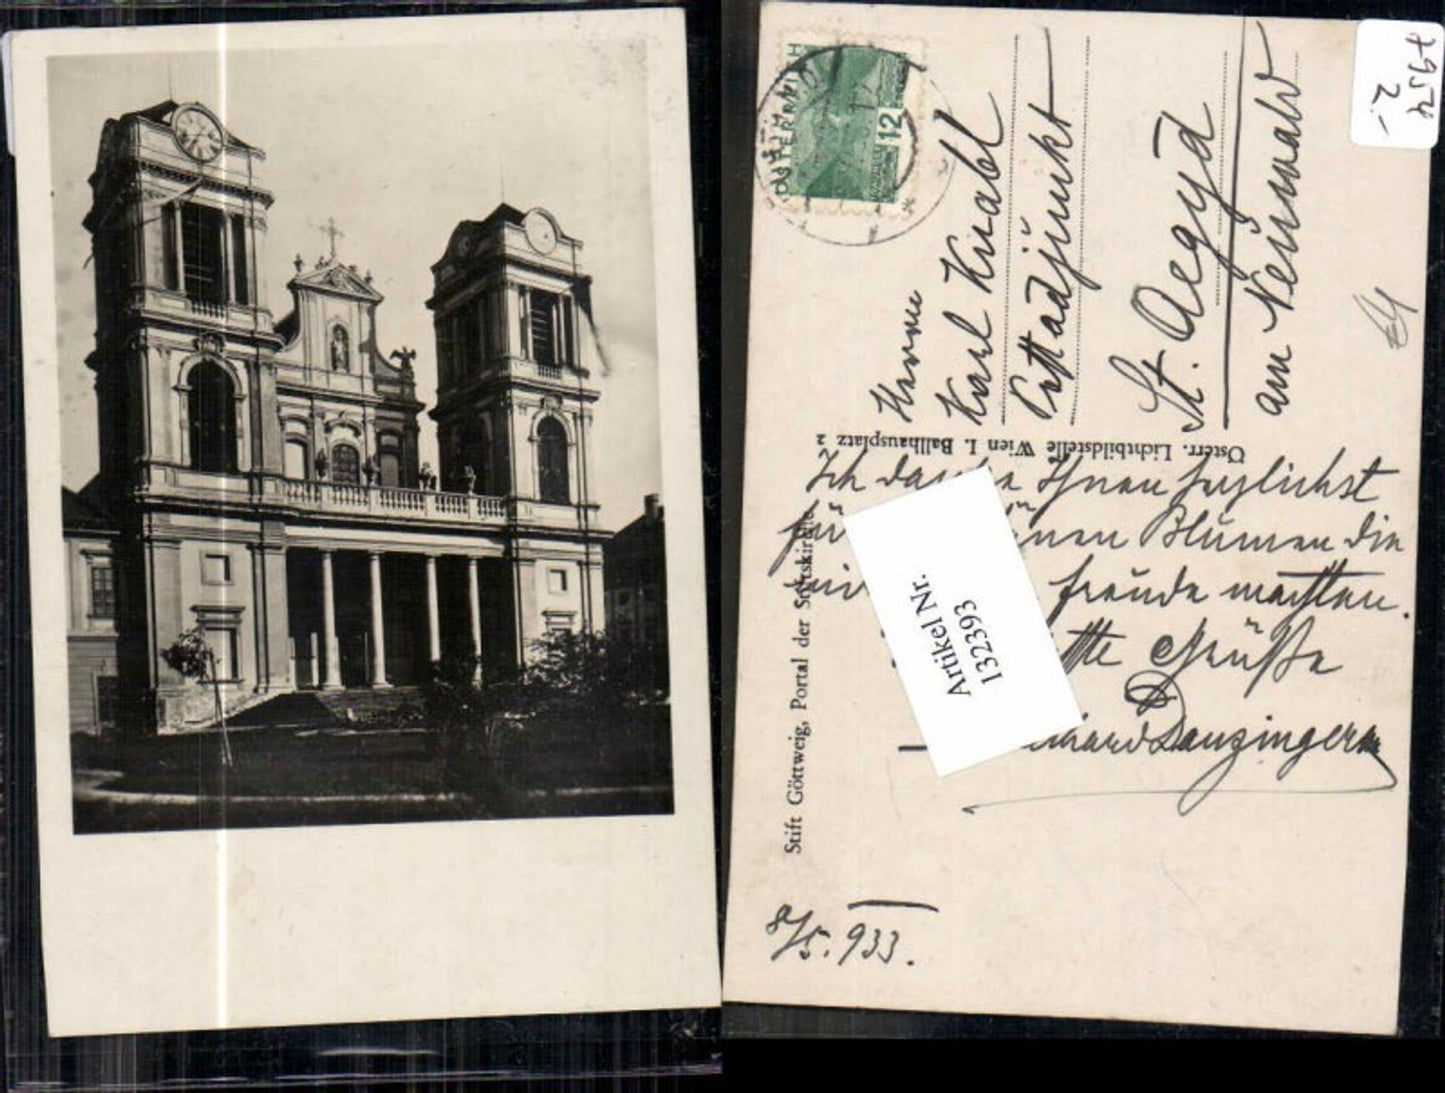 ÖSTERREICH
12
7954
2.-
Herrn
Karl Knabl
Postadjunkt
St. Aegyd
am Neuwald
Österr. Lichtbildstelle Wien I. Ballhausplatz 2
Ich danke Ihnen herzlichst
für Blumen die
Freude machten.
Grüße
Danzinger
Artikel Nr.
132393
Stift Göttweig, Portal der Stiftskirche
8/5. 933.